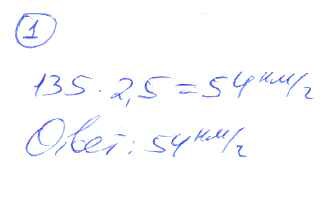 1
135 · 2,5 = 54 км/ч
Ответ: 54 км/ч